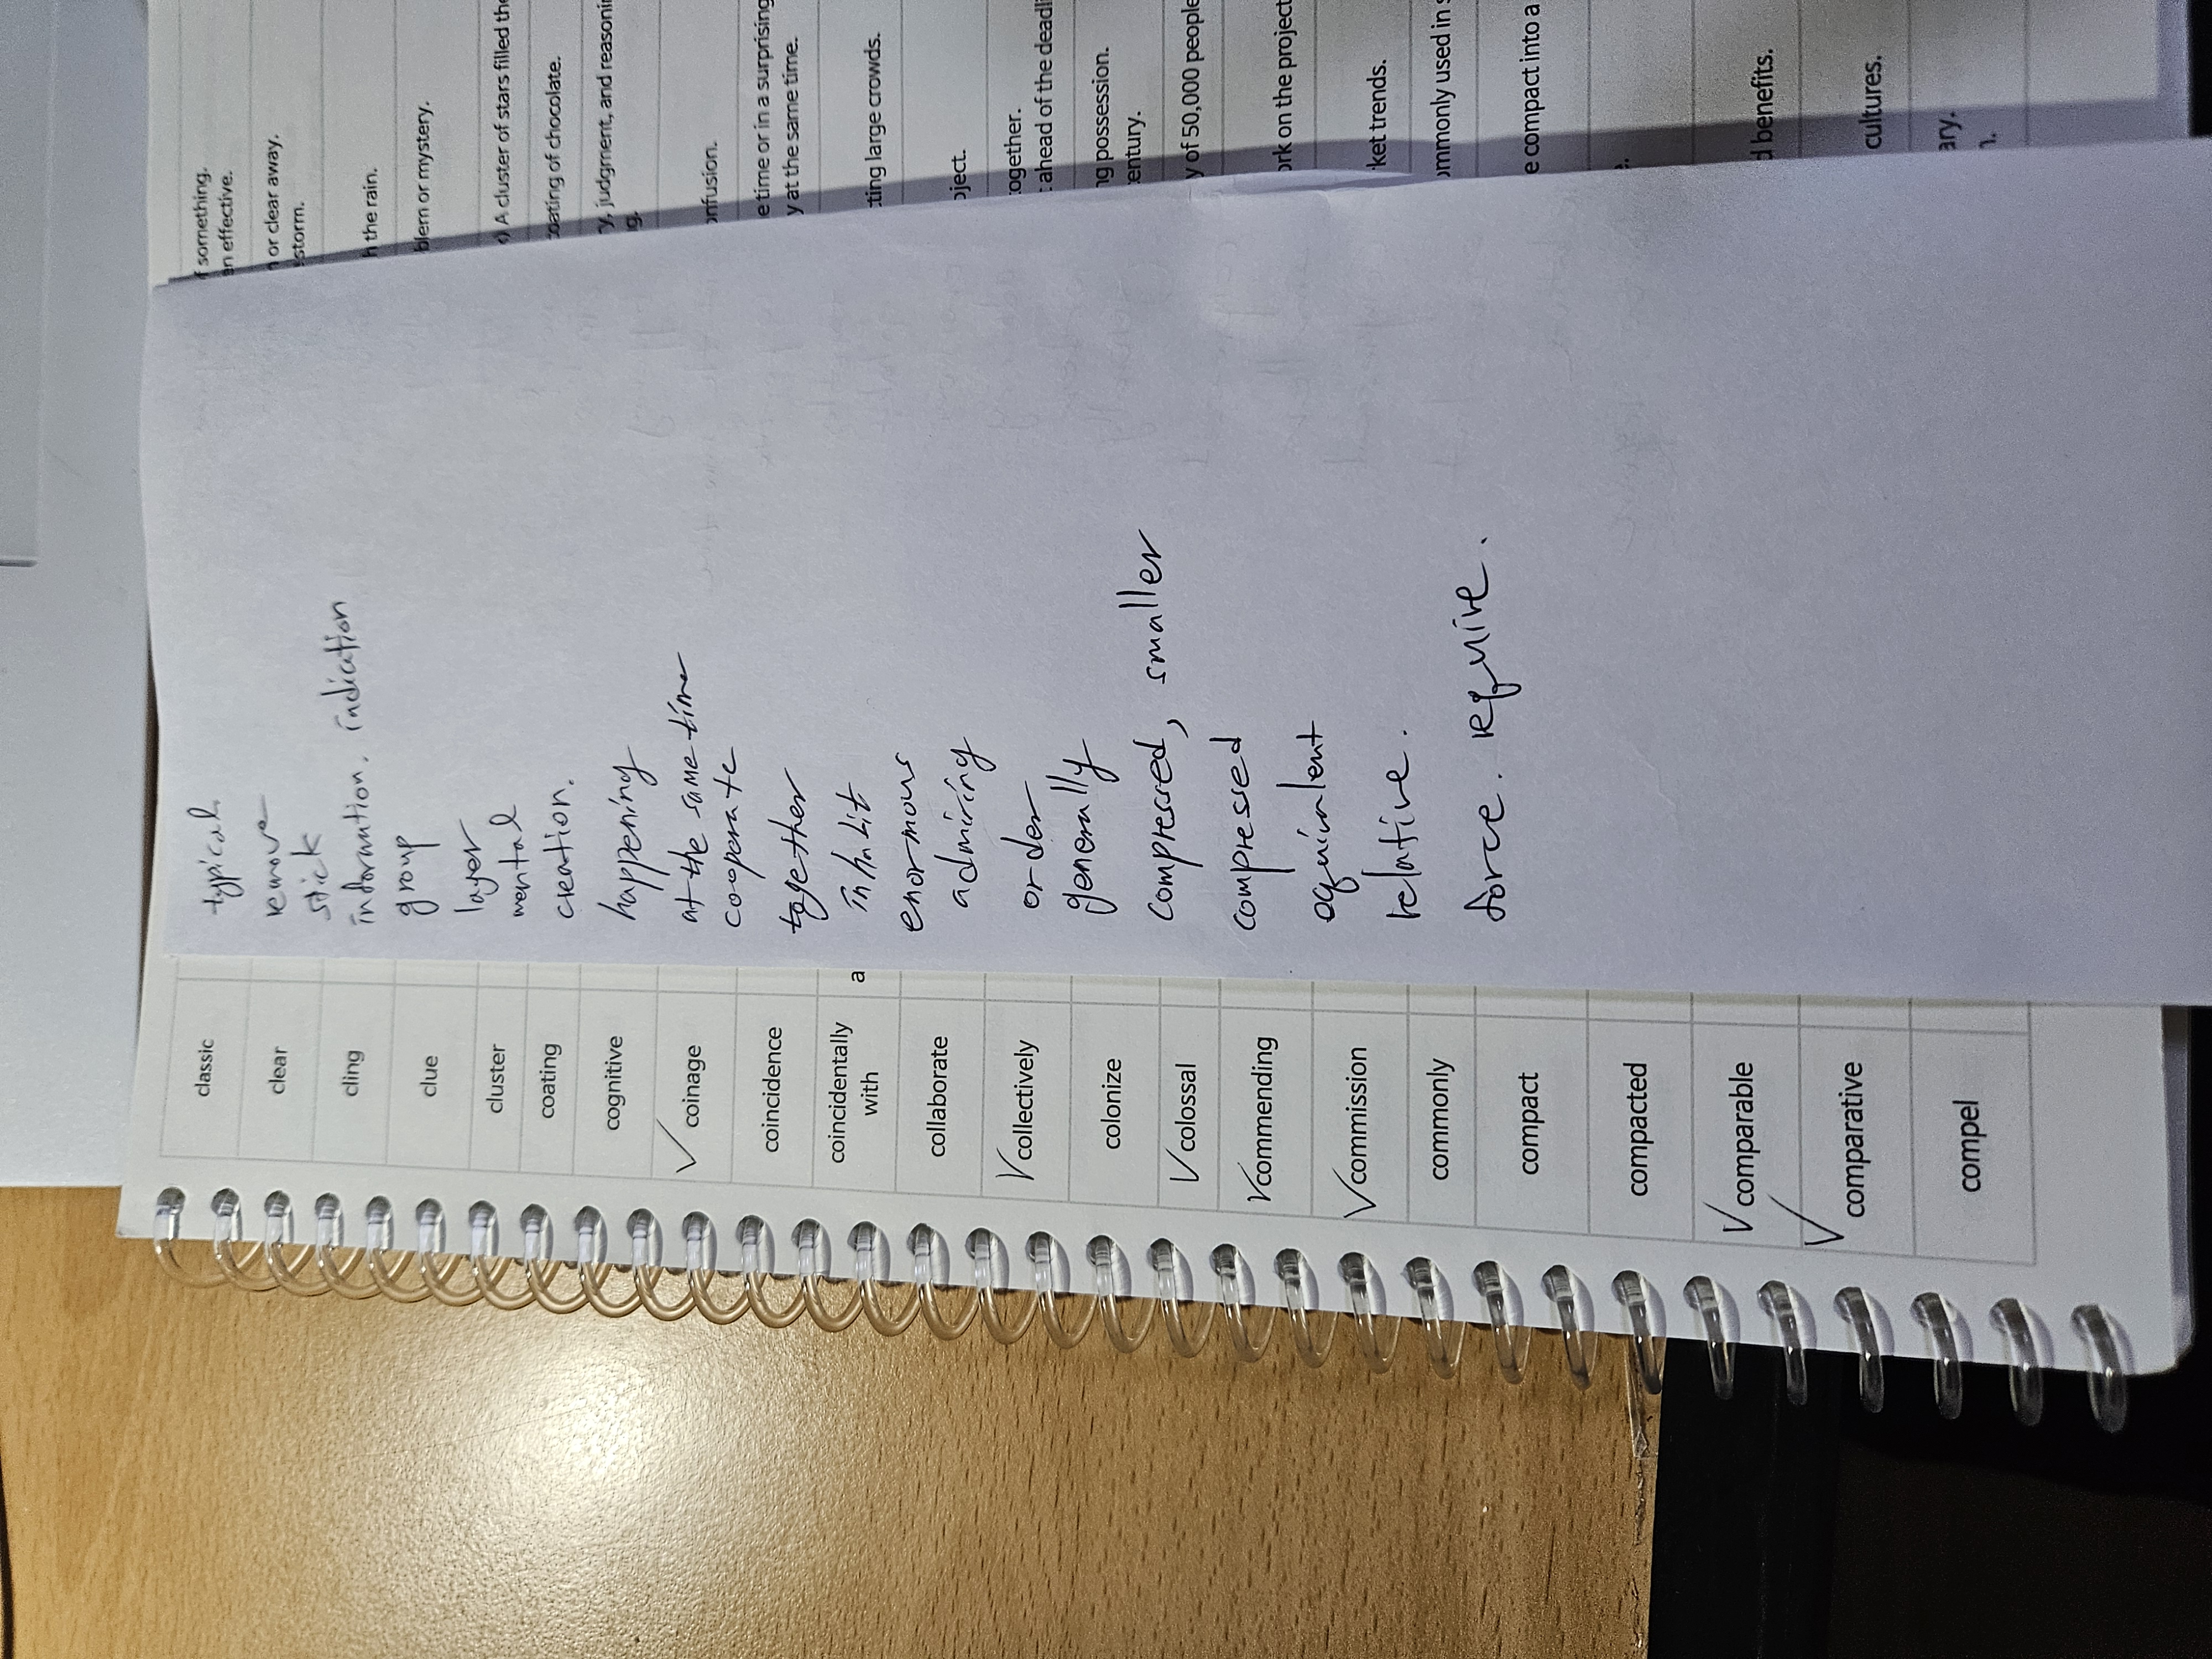 classic
clear
cling
clue
cluster
coating
cognitive
✓ coinage
coincidence
coincidentally
with
collaborate
✓ collectively
colonize
✓ colossal
✓ commending
✓ commission
commonly
compact
compacted
✓ comparable
✓ comparative
compel
a
typical
remove
stick
information. indication
group
layer
mental
creation.
happening
at the same time
cooperate
together
inhabit
enormous
admiring
order
generally
compressed, smaller
compressed
equivalent
relative.
force. require.
f something.
en effective.
or clear away.
storm.
the rain.
blem or mystery.
A cluster of stars filled the
coating of chocolate.
y, judgment, and reasoni
g.
onfusion.
e time or in a surprising
y at the same time.
cting large crowds.
oject.
ogether.
t ahead of the deadl
ng possession.
entury.
y of 50,000 people
ork on the project
ket trends.
ommonly used in s
e compact into a
d benefits.
cultures.
ary.